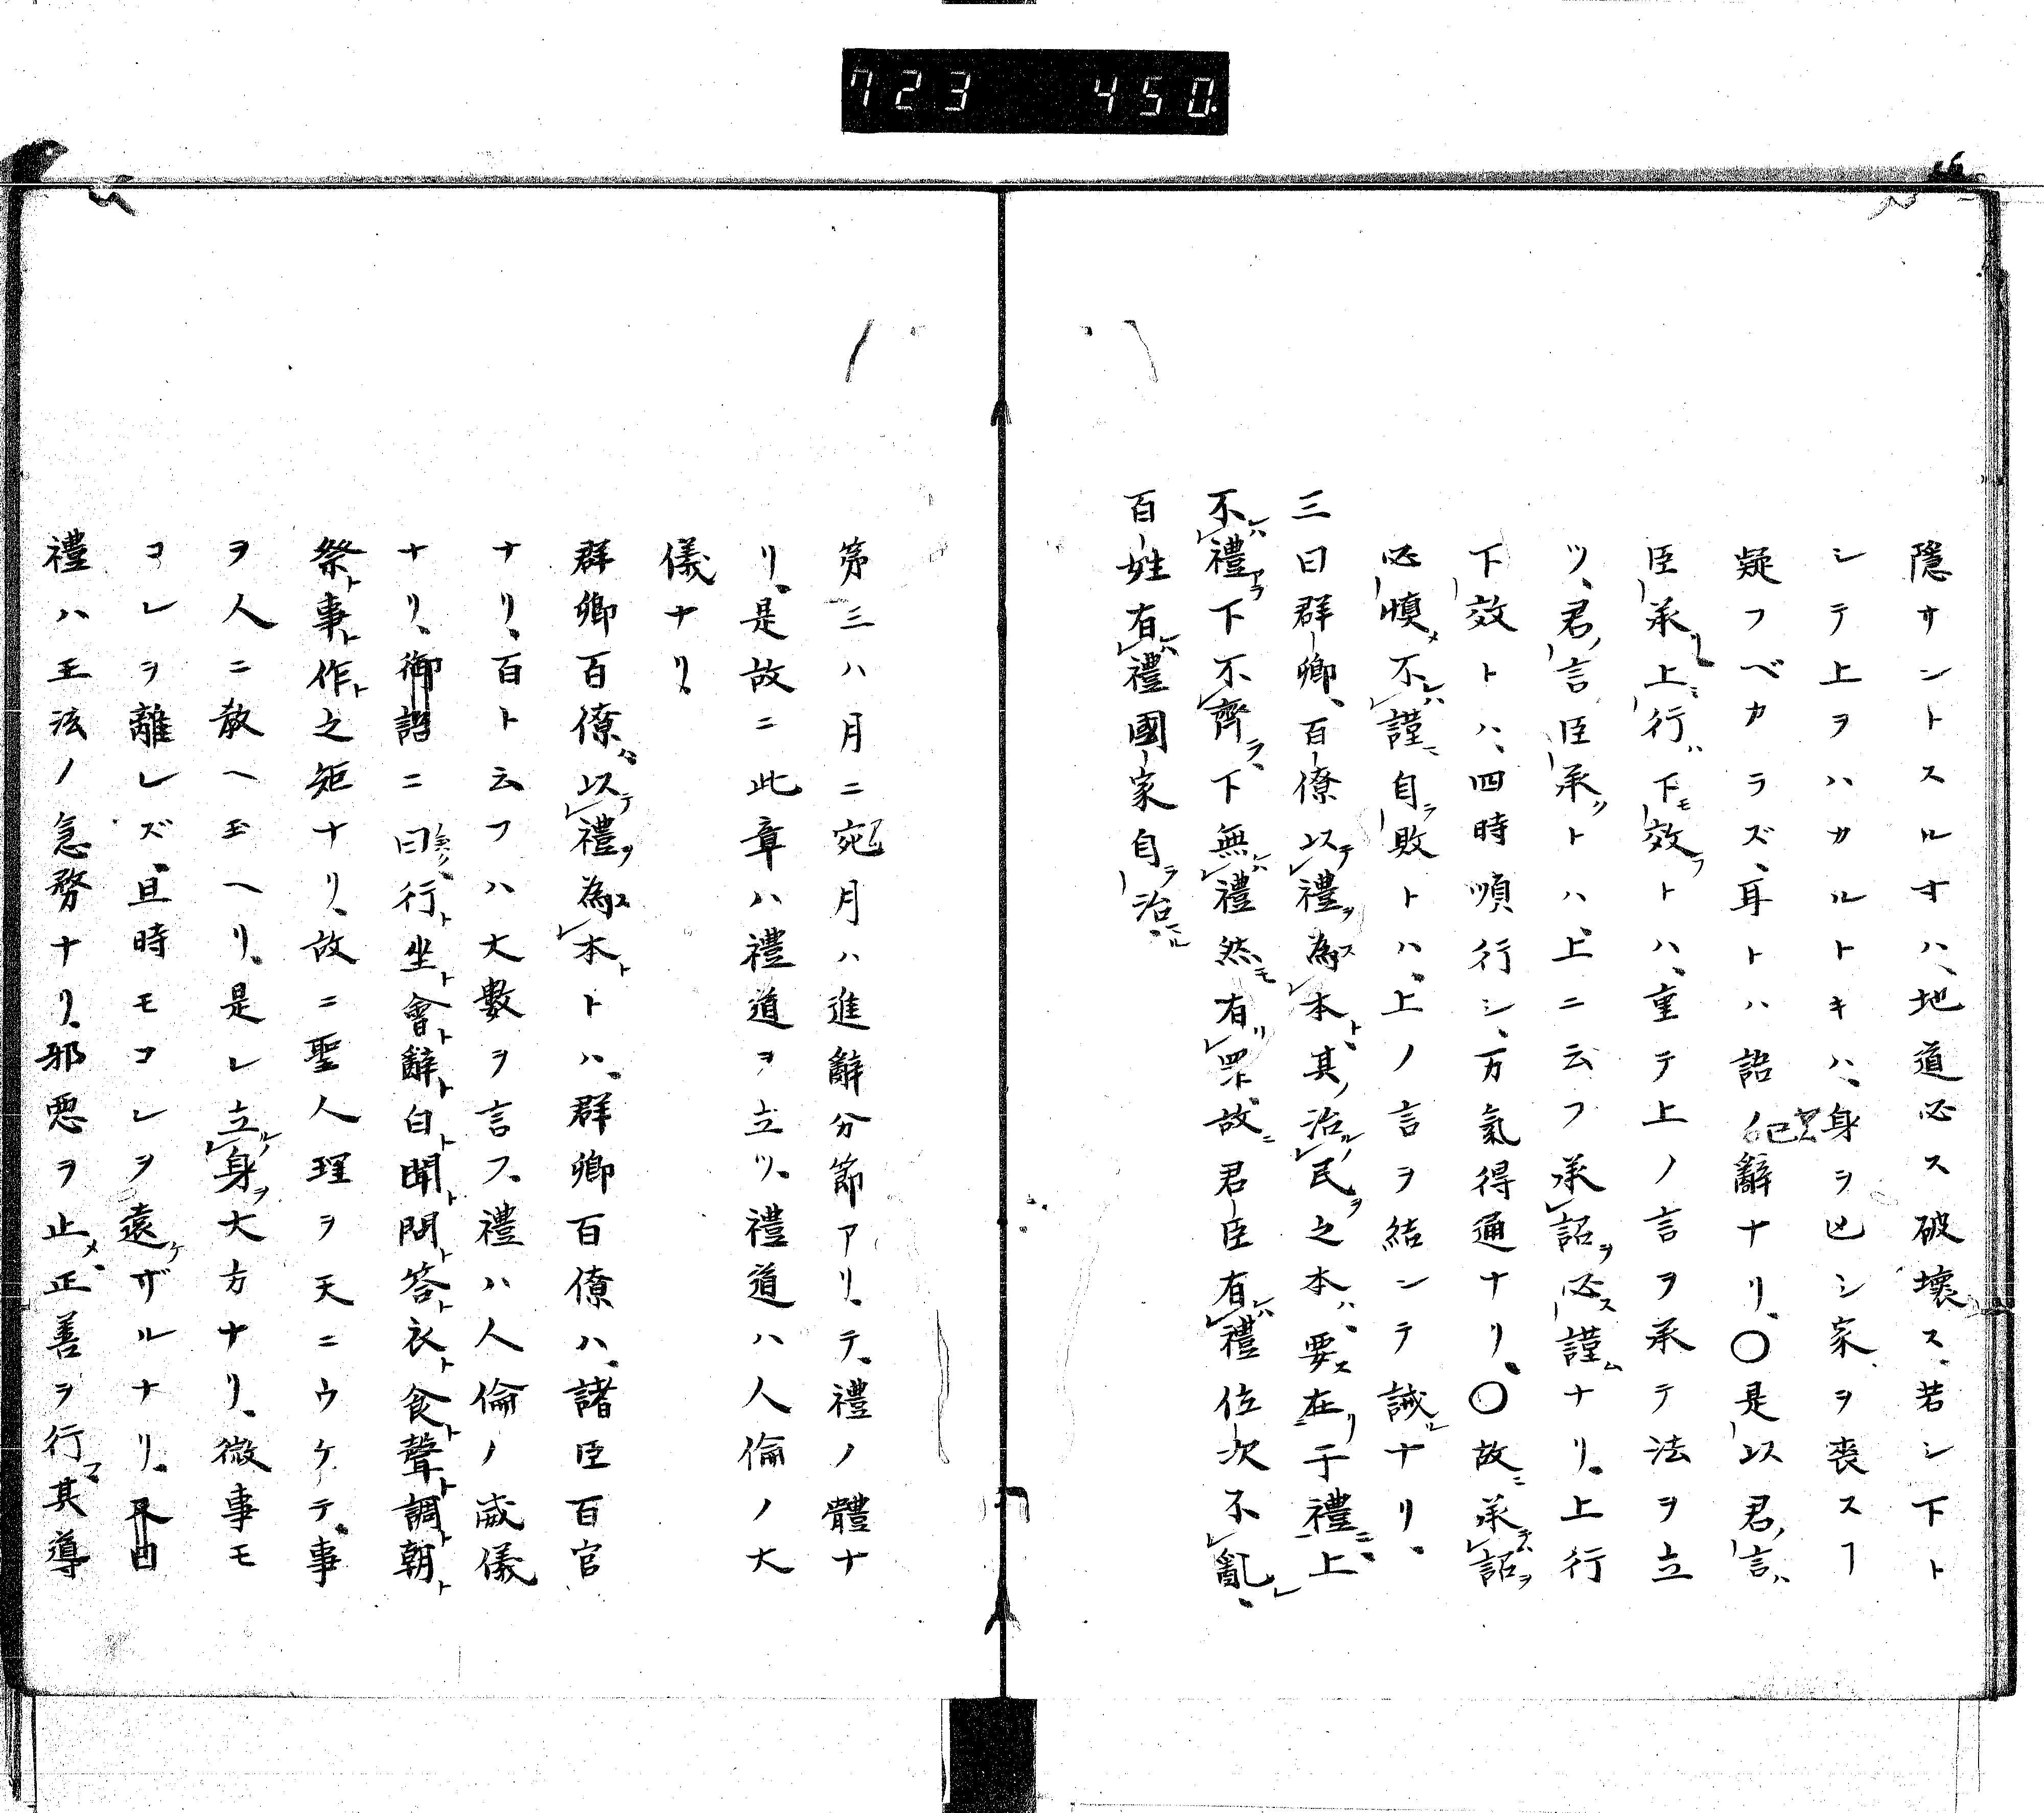 723 450
隱サントスルオハ、地道必ス破壞ス、若シ下ト
シテ上ヲハカルトキハ、身ヲ亡シ家ヲ喪スヿ
疑フベカラズ、耳トハ詔ノ已ノ辭ナリ、〇是以君ノ言ハ
臣承リ上ミ行ハ下モ效フトハ、重テ上ノ言ヲ承テ法ヲ立
ツ、君ノ言臣承ツトハ、上ニ云フ承詔ヲ必ス謹ムナリ、上行
下效トハ、四時順行シ、方氣得通ナリ、〇故ニ承テハ詔ヲ
必愼メ不レハ謹ミ自ラ敗トハ、上ノ言ヲ結ンテ誡ルナリ、
三曰群卿、百僚以テ禮ヲ為ス本ト、其ノ治ルノ民ヲ之本ハ、要ス在リ于禮ニ、上
不レハ禮アラ下不齊ラ、下無レハ禮然モ有リ罪ト、故ニ君臣有レハ禮位次不亂レ、
百姓有レハ禮國家自ラ治ル、
第三ハ月ニ宛ツ月ハ進辭分節アリ、テ、禮ノ體ナ
リ、是故ニ此章ハ禮道ヲ立ツ、禮道ハ人倫ノ大
儀ナリ、
群卿百僚ハ、以テ禮ヲ為ス本トトハ、群卿百僚ハ、諸臣百官
ナリ、百ト云フハ大數ヲ言フ、禮ハ人倫ノ威儀
ナリ、御語ニ曰行ト坐ト會ト辭ト白ト聞ト問ト答ト衣ト食ト聲ト調ト朝ト
祭ト事ト作ト之矩ナリ、故ニ聖人理ヲ天ニウケテ、事
ヲ人ニ教ヘ玉ヘリ、是レ立ルノ身ヲ大方ナリ、微事モ
コレヲ離レズ、且時モコレヲ遠ケザルナリ、又曰
禮ハ王法ノ急務ナリ、邪悪ヲ止メ、正善ヲ行フマ其導